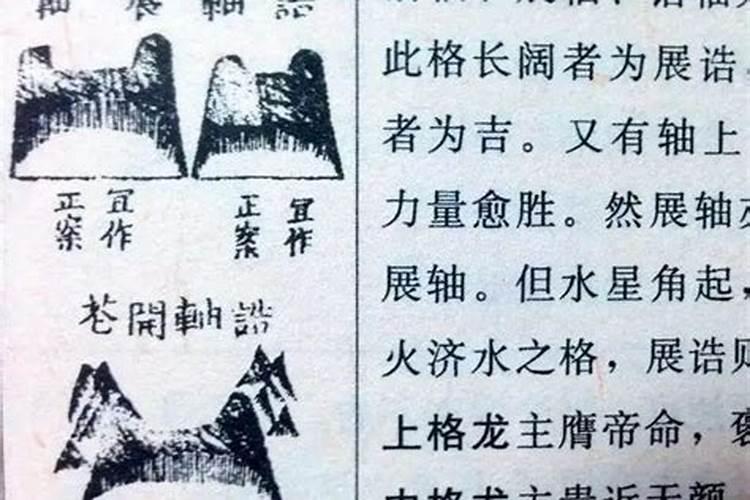 軸展軸誥
宜作
正案
宜作
正案
花開軸誥
此格长阔者为展诰
者为吉。又有轴上
力量愈胜。然展轴
展轴。但水星角起，
火济水之格，展诰则
上格龙主膺帝命，褒